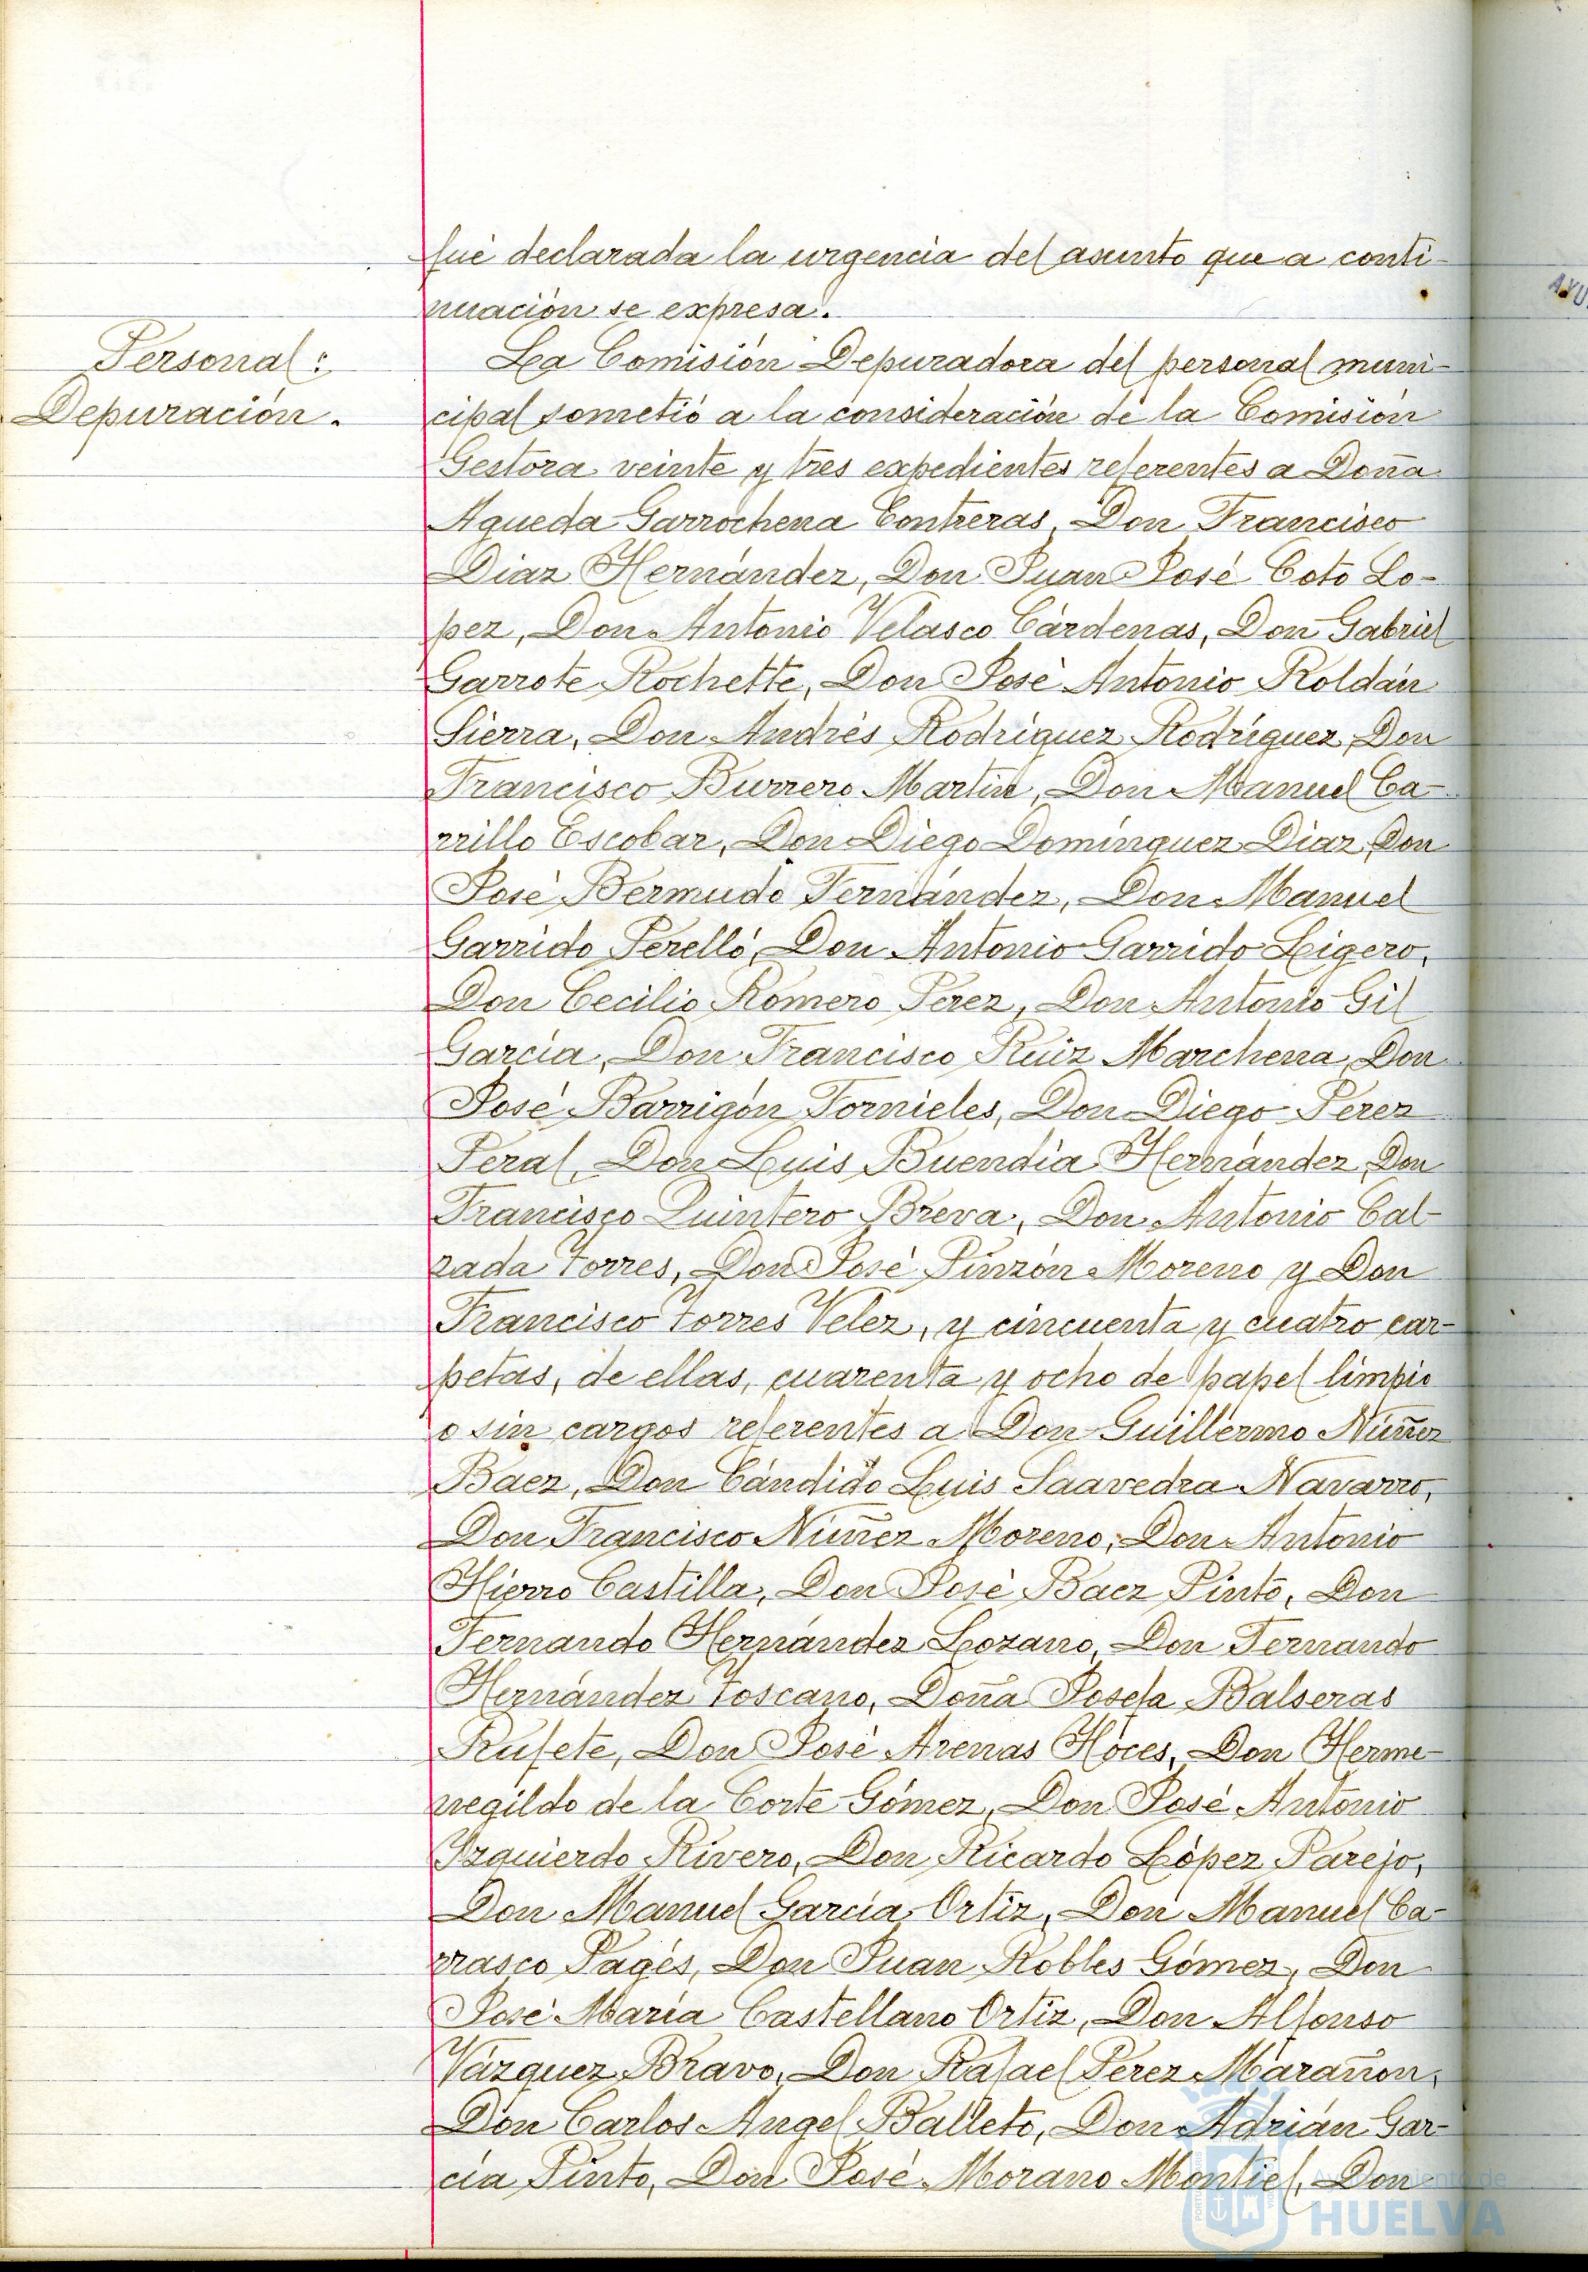 fué declarada la urgencia del asunto que a conti-
nuación se expresa.
Personal:
Depuración.
La Comisión Depuradora del personal muni-
cipal sometió a la consideración de la Comisión
Gestora veinte y tres expedientes referentes a Doña
Agueda Garrochena Contreras, Don Francisco
Diaz Hernández, Don Juan José Coto Lo-
pez, Don Antonio Velasco Cárdenas, Don Gabriel
Garrote Rochette, Don José Antonio Roldán
Sierra, Don Andrés Rodríguez Rodríguez, Don
Francisco Burrero Martín, Don Manuel Ca-
rrillo Escobar, Don Diego Domínguez Diaz, Don
José Bermudo Fernández, Don Manuel
Garrido Perelló, Don Antonio Garrido Ligero,
Don Cecilio Romero Pérez, Don Antonio Gil
García, Don Francisco Ruiz Marchena, Don
José Barrigón Tornieles, Don Diego Pérez
Peral, Don Luis Buendía Hernández, Don
Francisco Quintero Breva, Don Antonio Cal-
zada Torres, Don José Pinzón Moreno y Don
Francisco Torres Velez, y cincuenta y cuatro car-
petas, de ellas, cuarenta y ocho de papel limpio
o sin cargos referentes a Don Guillermo Núñez
Baez, Don Cándido Luis Saavedra Navarro,
Don Francisco Núñez Moreno, Don Antonio
Hierro Castilla, Don José Baez Pinto, Don
Fernando Hernández Lozano, Don Fernando
Hernández Toscano, Doña Josefa Balseras
Rufete, Don José Arenas Hóces, Don Herme-
negildo de la Corte Gómez, Don José Antonio
Izquierdo Rivero, Don Ricardo López Parejo,
Don Manuel García Ortiz, Don Manuel Ca-
rrasco Pagés, Don Juan Robles Gómez, Don
José María Castellano Ortiz, Don Alfonso
Vázquez Bravo, Don Rafael Pérez Marañon,
Don Carlos Angel Balleto, Don Adrián Gar-
cía Pinto, Don José Morano Montiel, Don
Ayuntamiento de
HUELVA